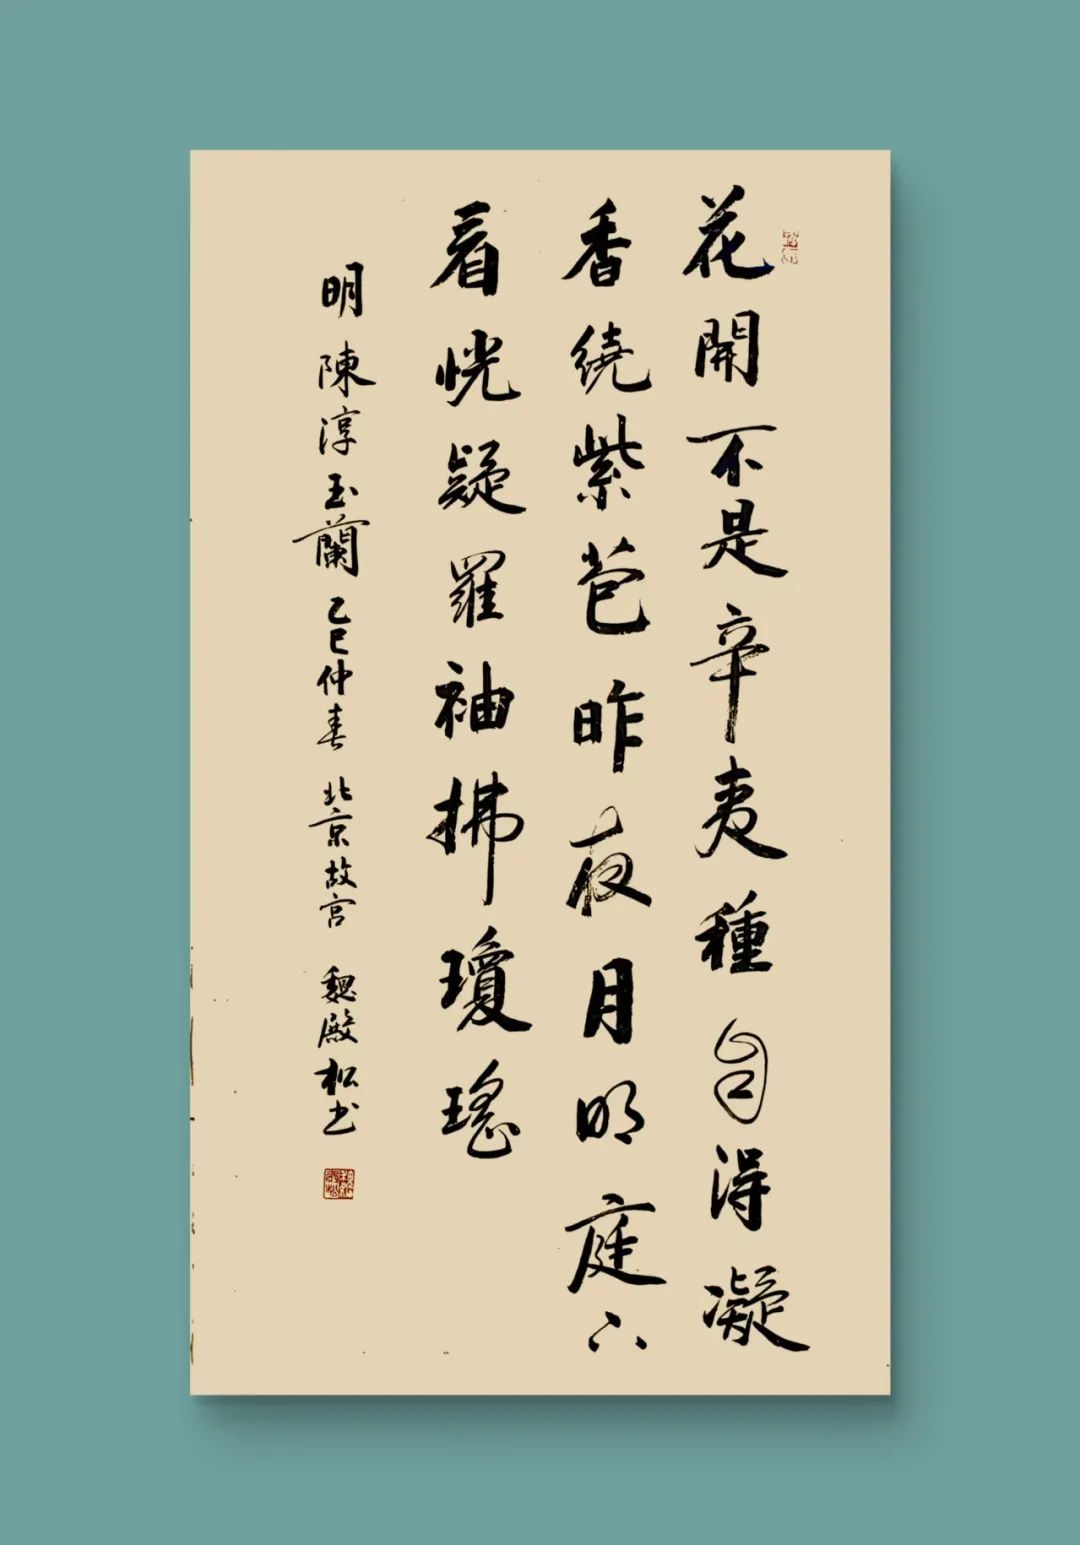 花開不是辛夷種自得凝
香繞紫苞昨夜月明庭下
看恍疑羅袖拂瓊瑤
明陳淳玉蘭乙巳仲春北京故宮魏殿松书